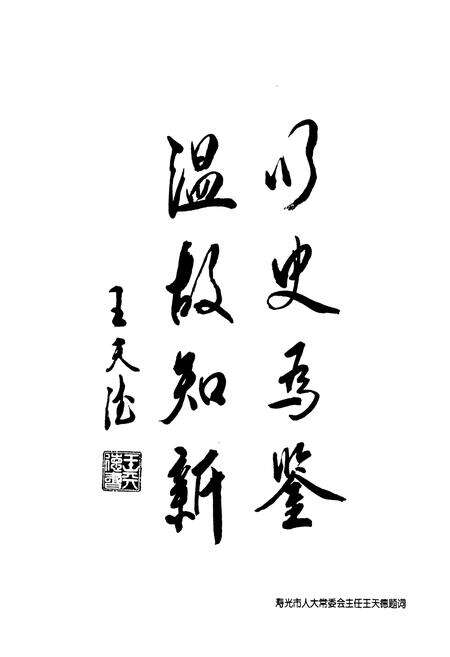 以史为鉴
温故知新
王天德
寿光市人大常委会主任王天德题词